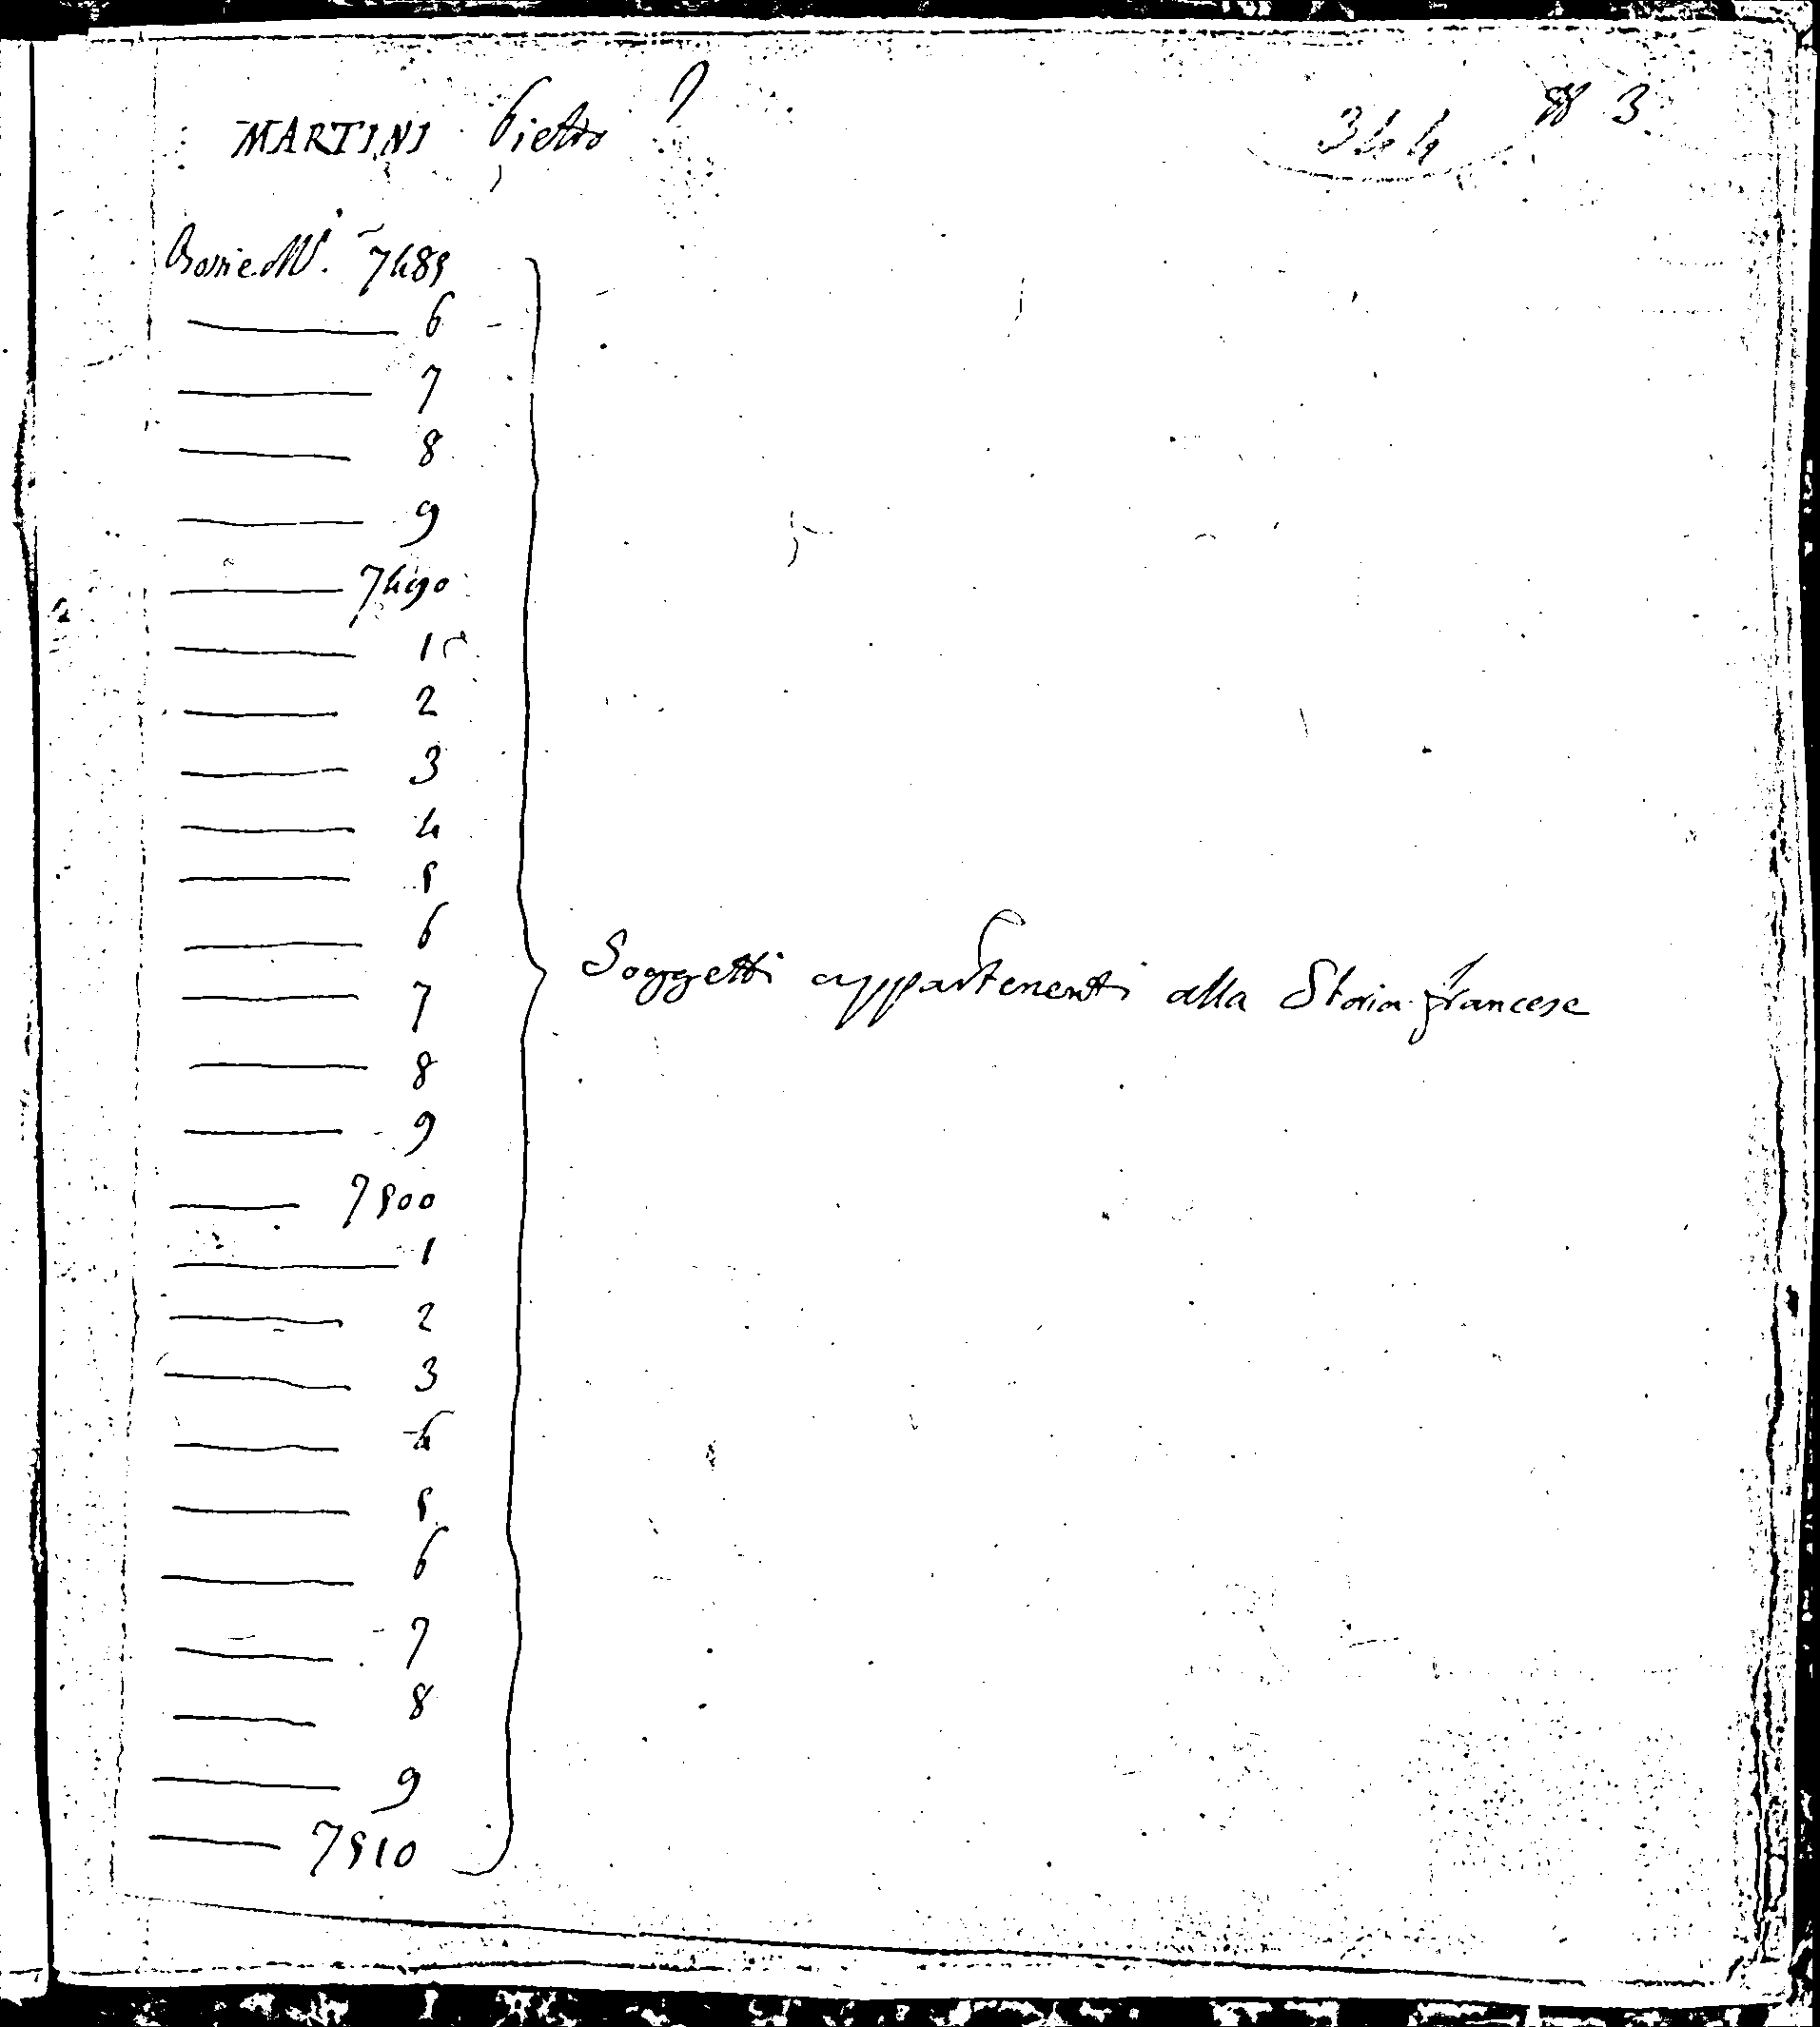 MARTINI Pietro 344 3
N°. 7485
—— 6
—— 7
—— 8
—— 9
—— 7490
—— 1
—— 2
—— 3
—— 4
—— 5
—— 6
Soggetti appartenenti alla Storia francese
—— 7
—— 8
—— 9
—— 7500
—— 1
—— 2
—— 3
—— 4
—— 5
—— 6
—— 7
—— 8
—— 9
—— 7510